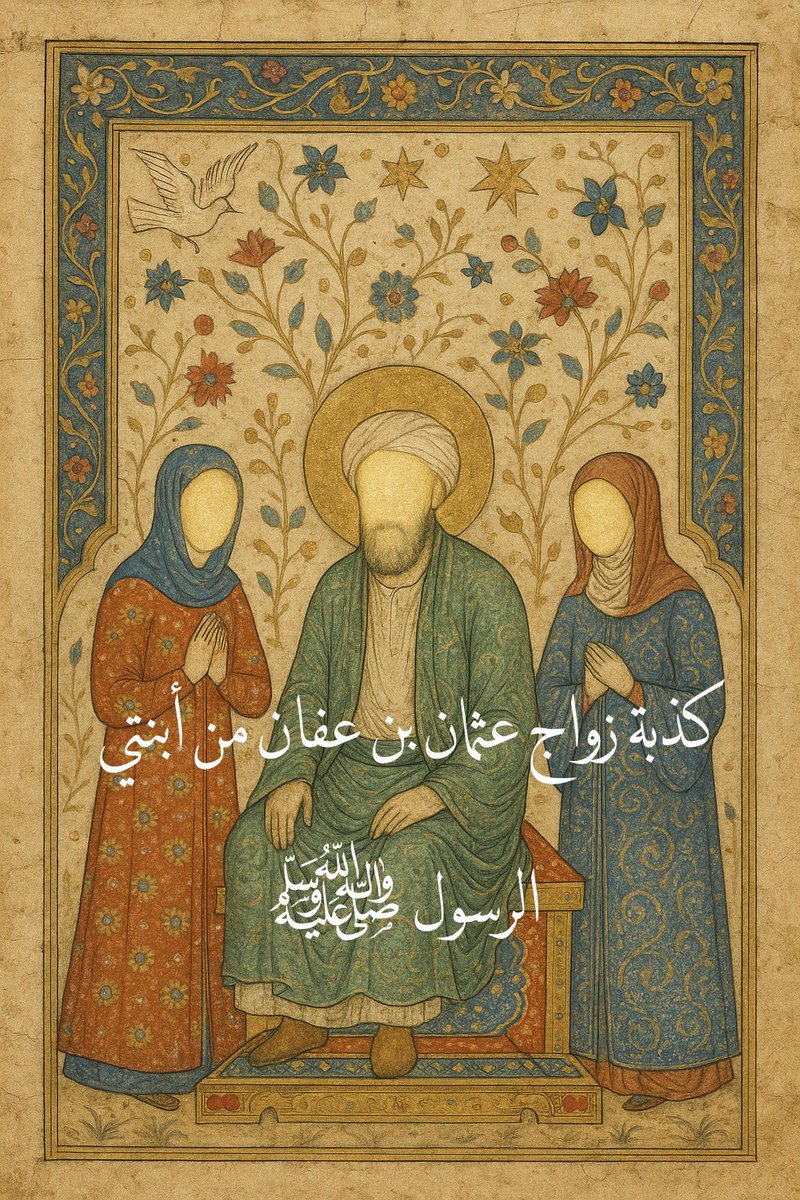 كذبة زواج عثمان بن عفان من أبنتي
الرسول صلى الله عليه واله وسلم